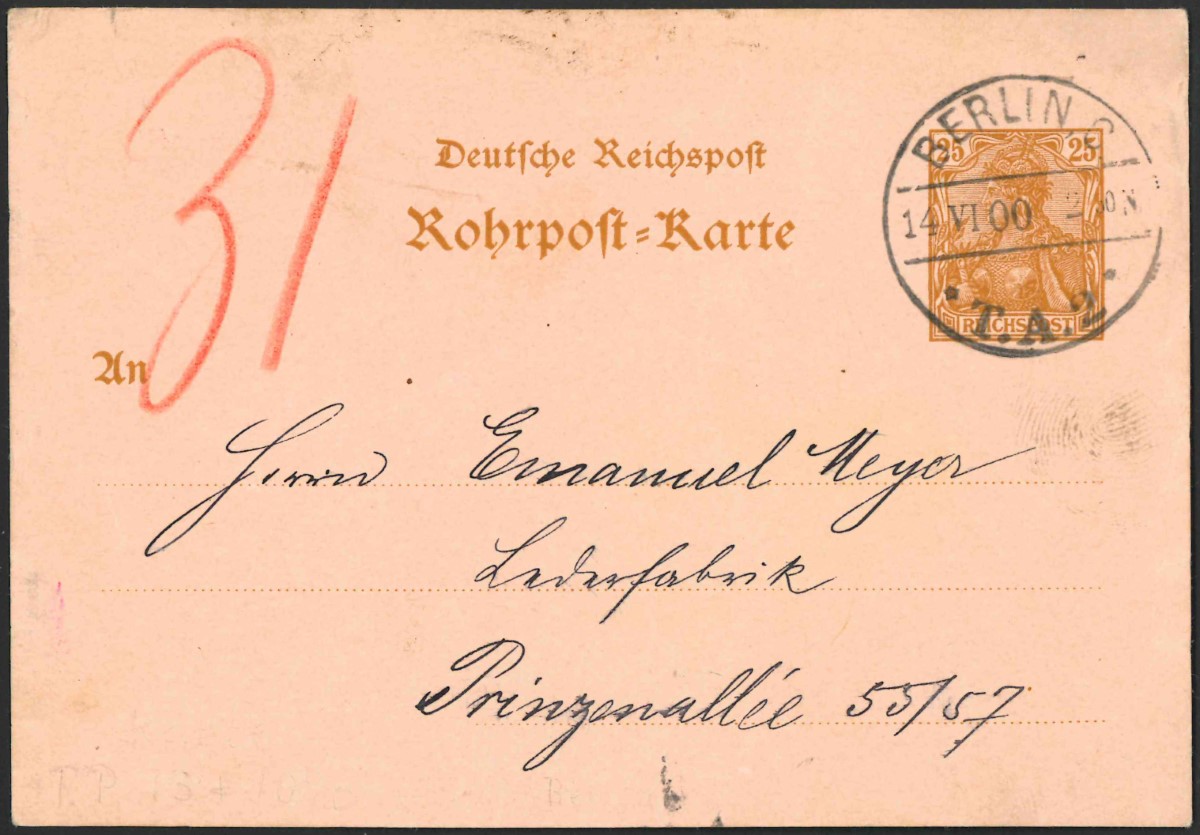 31
Deutsche Reichspost
Rohrpost-Karte
BERLIN, S.
25 25
14 VI 00 2 30 N.
REICHSPOST
* T.A.2 *
An
Herrn Emanuel Meyer
Lederfabrik
Prinzenallée 55/57